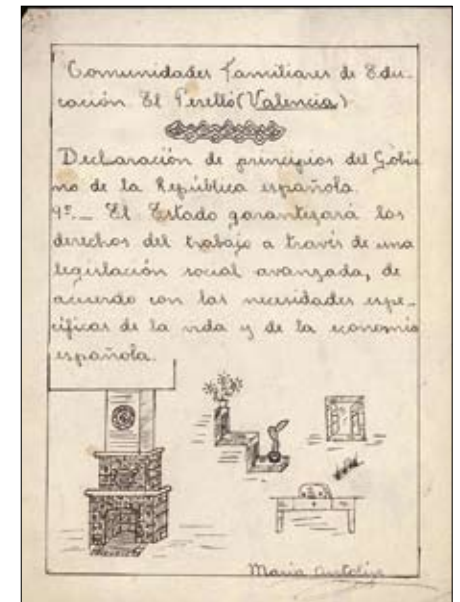 Comunidades Familiares de Edu-
cación. El Perelló (Valencia)
Declaración de principios del Gobier
no de la República española.
9º._ El Estado garantizará los
derechos del trabajo a través de una
legislación social avanzada, de
acuerdo con las necesidades espe-
cíficas de la vida y de la economía
española.
María